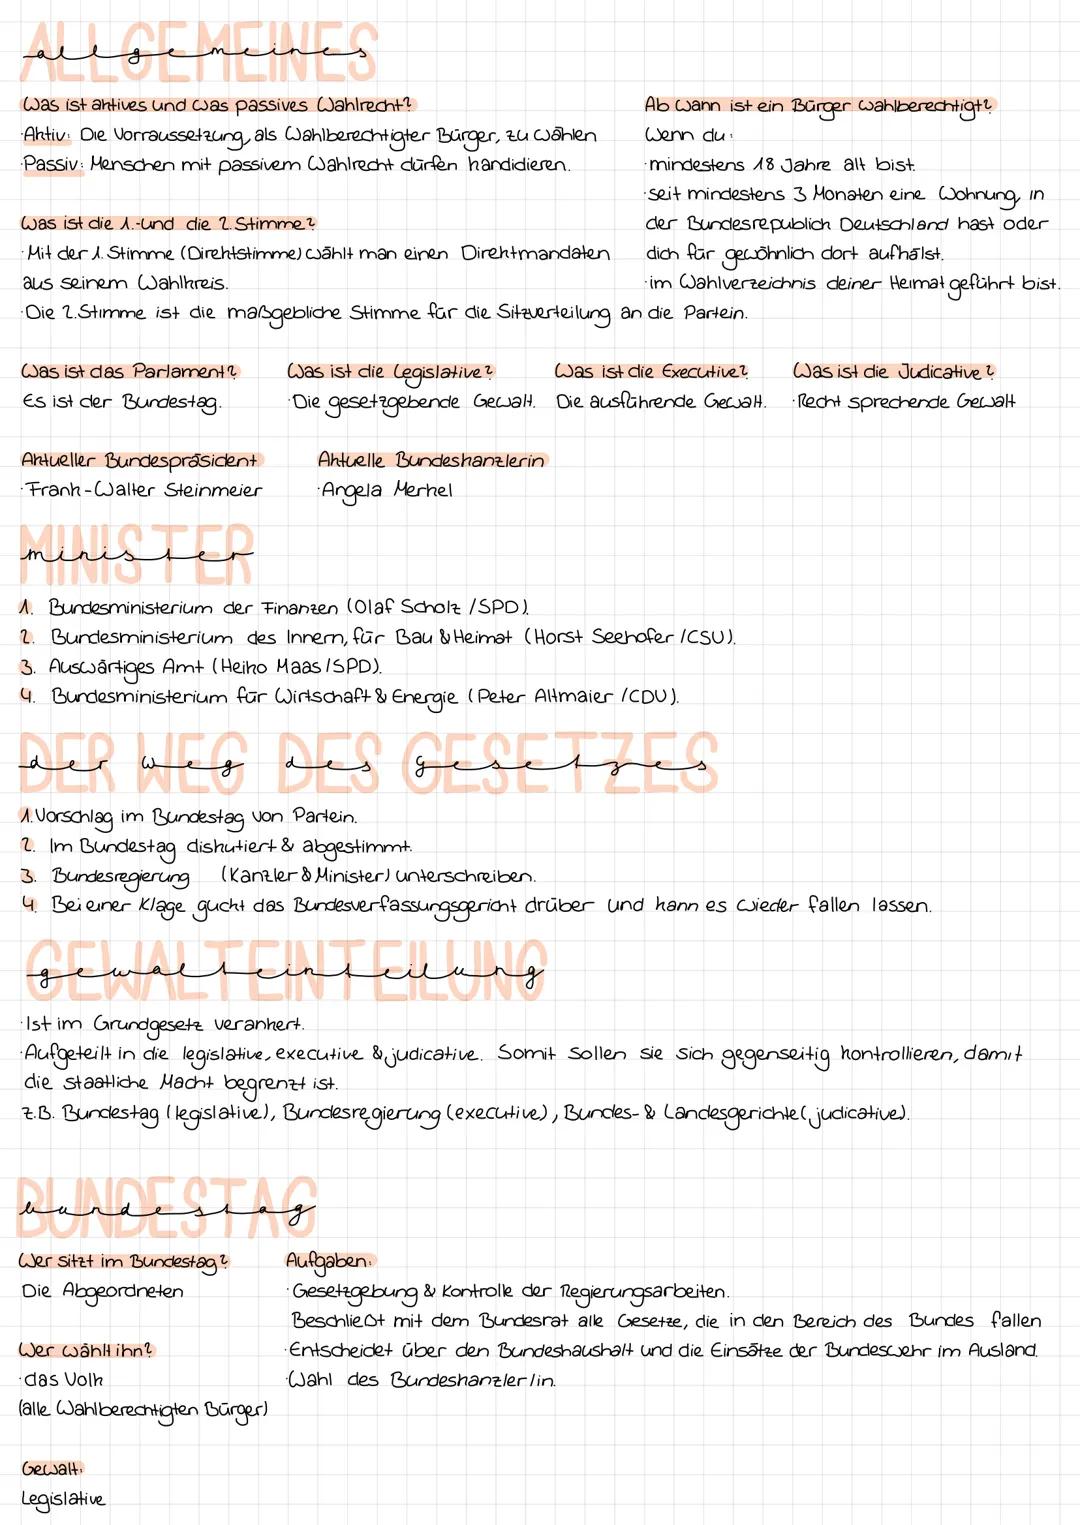 ALLGEMEINES
allgemeines
Was ist aktives und was passives Wahlrecht?
·Aktiv: Die Vorraussetzung, als Wahlberechtigter Bürger, zu wählen
·Passiv: Menschen mit passivem Wahlrecht dürfen kandidieren.
Ab wann ist ein Bürger wahlberechtigt?
Wenn du:
·mindestens 18 Jahre alt bist.
·seit mindestens 3 Monaten eine Wohnung, in
der Bundesrepublick Deutschland hast oder
dich für gewöhnlich dort aufhälst.
·im Wahlverzeichnis deiner Heimat geführt bist.
Was ist die 1.-und die 2. Stimme?
·Mit der 1. Stimme (Direktstimme) wählt man einen Direktmandaten
aus seinem Wahlkreis.
·Die 2.Stimme ist die maßgebliche Stimme für die Sitzverteilung an die Partein.
Was ist das Parlament?
Es ist der Bundestag.
Was ist die Legislative?
·Die gesetzgebende Gewalt.
Was ist die Executive?
Die ausführende Gewalt.
Was ist die Judicative?
·Recht sprechende Gewalt
Aktueller Bundespräsident
·Frank-Walter Steinmeier
Aktuelle Bundeskanzlerin
·Angela Merkel
MINISTER
minister
1. Bundesministerium der Finanzen (Olaf Scholz /SPD).
2. Bundesministerium des Innern, für Bau & Heimat (Horst Seehofer /CSU).
3. Auswärtiges Amt (Heiko Maas/SPD).
4. Bundesministerium für Wirtschaft & Energie (Peter Altmaier /CDU).
DER WEG DES GESETZES
der weg des gesetzes
1. Vorschlag im Bundestag von Partein.
2. Im Bundestag diskutiert & abgestimmt.
3. Bundesregierung (Kanzler & Minister) unterschreiben.
4. Bei einer Klage guckt das Bundesverfassungsgericht drüber und kann es wieder fallen lassen.
GEWALTEINTEILUNG
gewalteinteilung
·Ist im Grundgesetz verankert.
·Aufgeteilt in die legislative, executive & judicative. Somit sollen sie sich gegenseitig kontrollieren, damit
die staatliche Macht begrenzt ist.
z.B. Bundestag (legislative), Bundesregierung (executive), Bundes- & Landesgerichte (judicative).
BUNDESTAG
bundestag
Wer sitzt im Bundestag?
Die Abgeordneten
Wer wählt ihn?
·das Volk
(alle Wahlberechtigten Bürger)
Gewalt:
Legislative
Aufgaben:
·Gesetzgebung & Kontrolle der Regierungsarbeiten.
Beschließt mit dem Bundesrat alle Gesetze, die in den Bereich des Bundes fallen
·Entscheidet über den Bundeshaushalt und die Einsätze der Bundeswehr im Ausland.
·Wahl des Bundeskanzler/in.